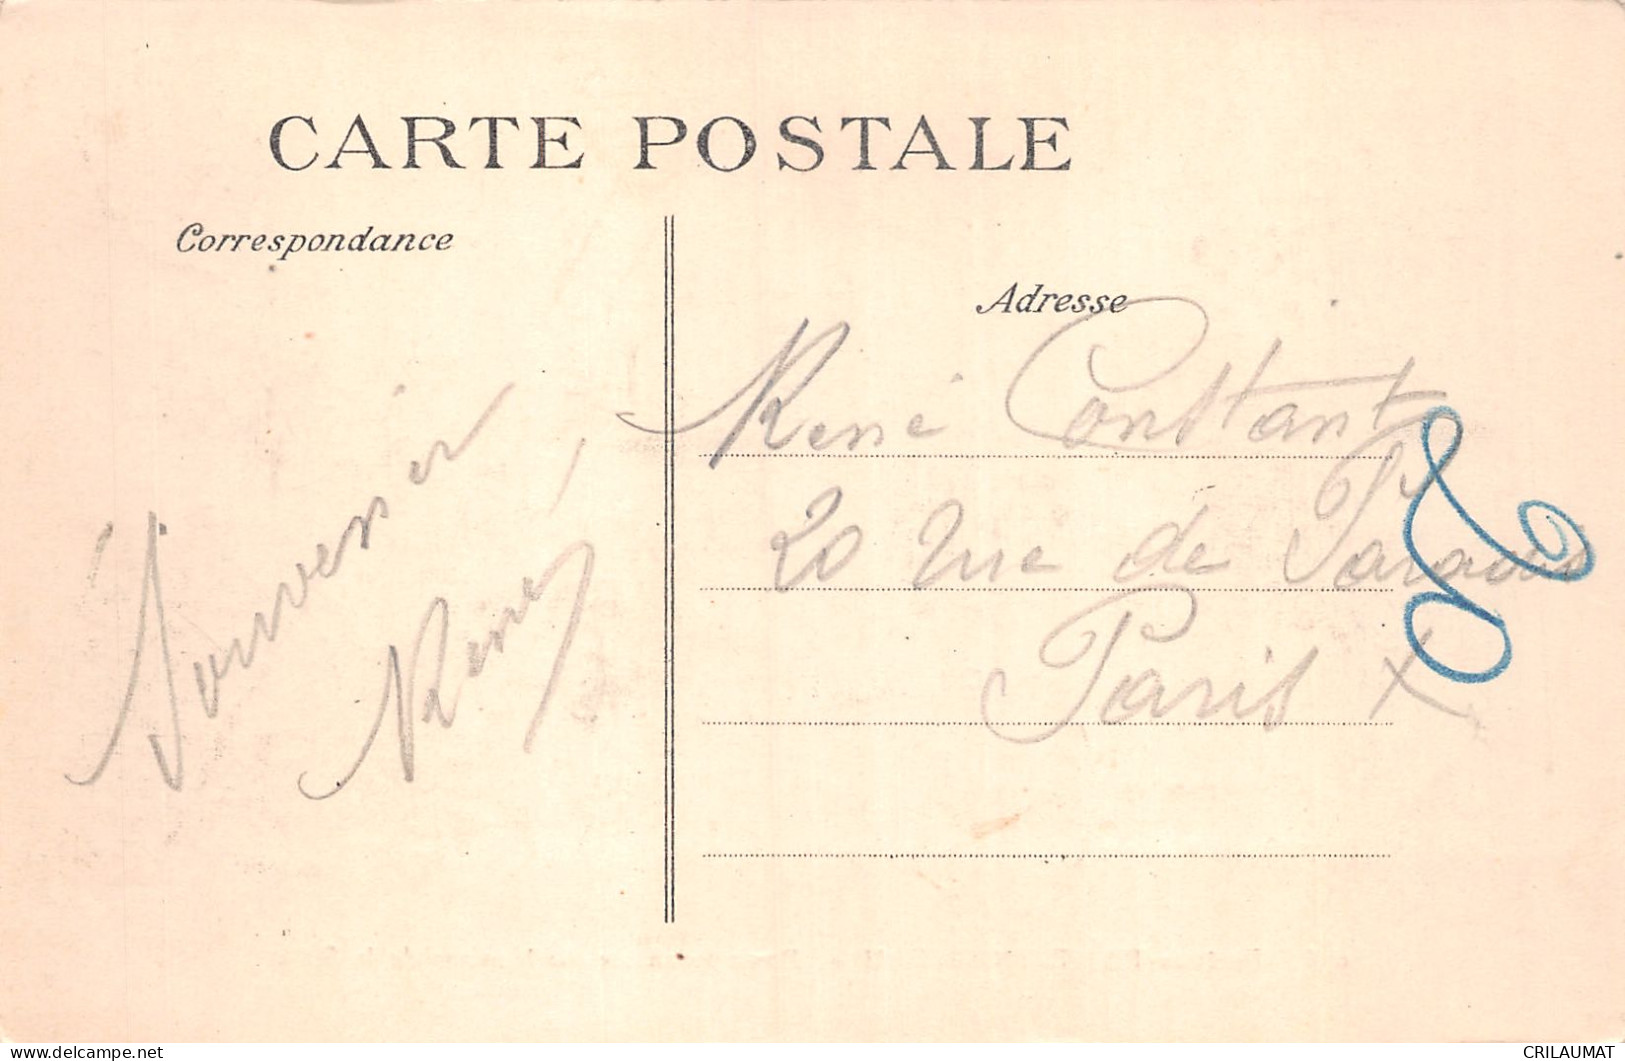 CARTE POSTALE
Correspondance
Adresse
Souvenir
René
René Constant
20 rue de Paradis
Paris X
CRILAUMAT